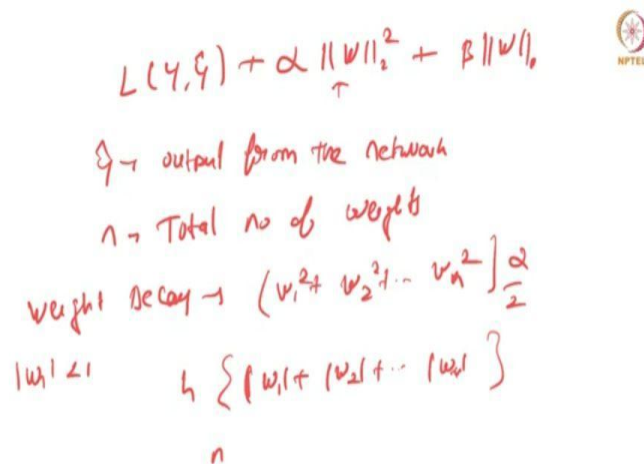 NPTEL
L(Y,Ŷ) + α ||W||₂² + β ||W||₁
↑
ŷ → output from the network
n → Total no of weights
Weight Decay → (w₁² + w₂² + ·· wₙ²] α/2
|wᵢ| < 1
{|w₁| + |w₂| + ·· |wₙ| }
n